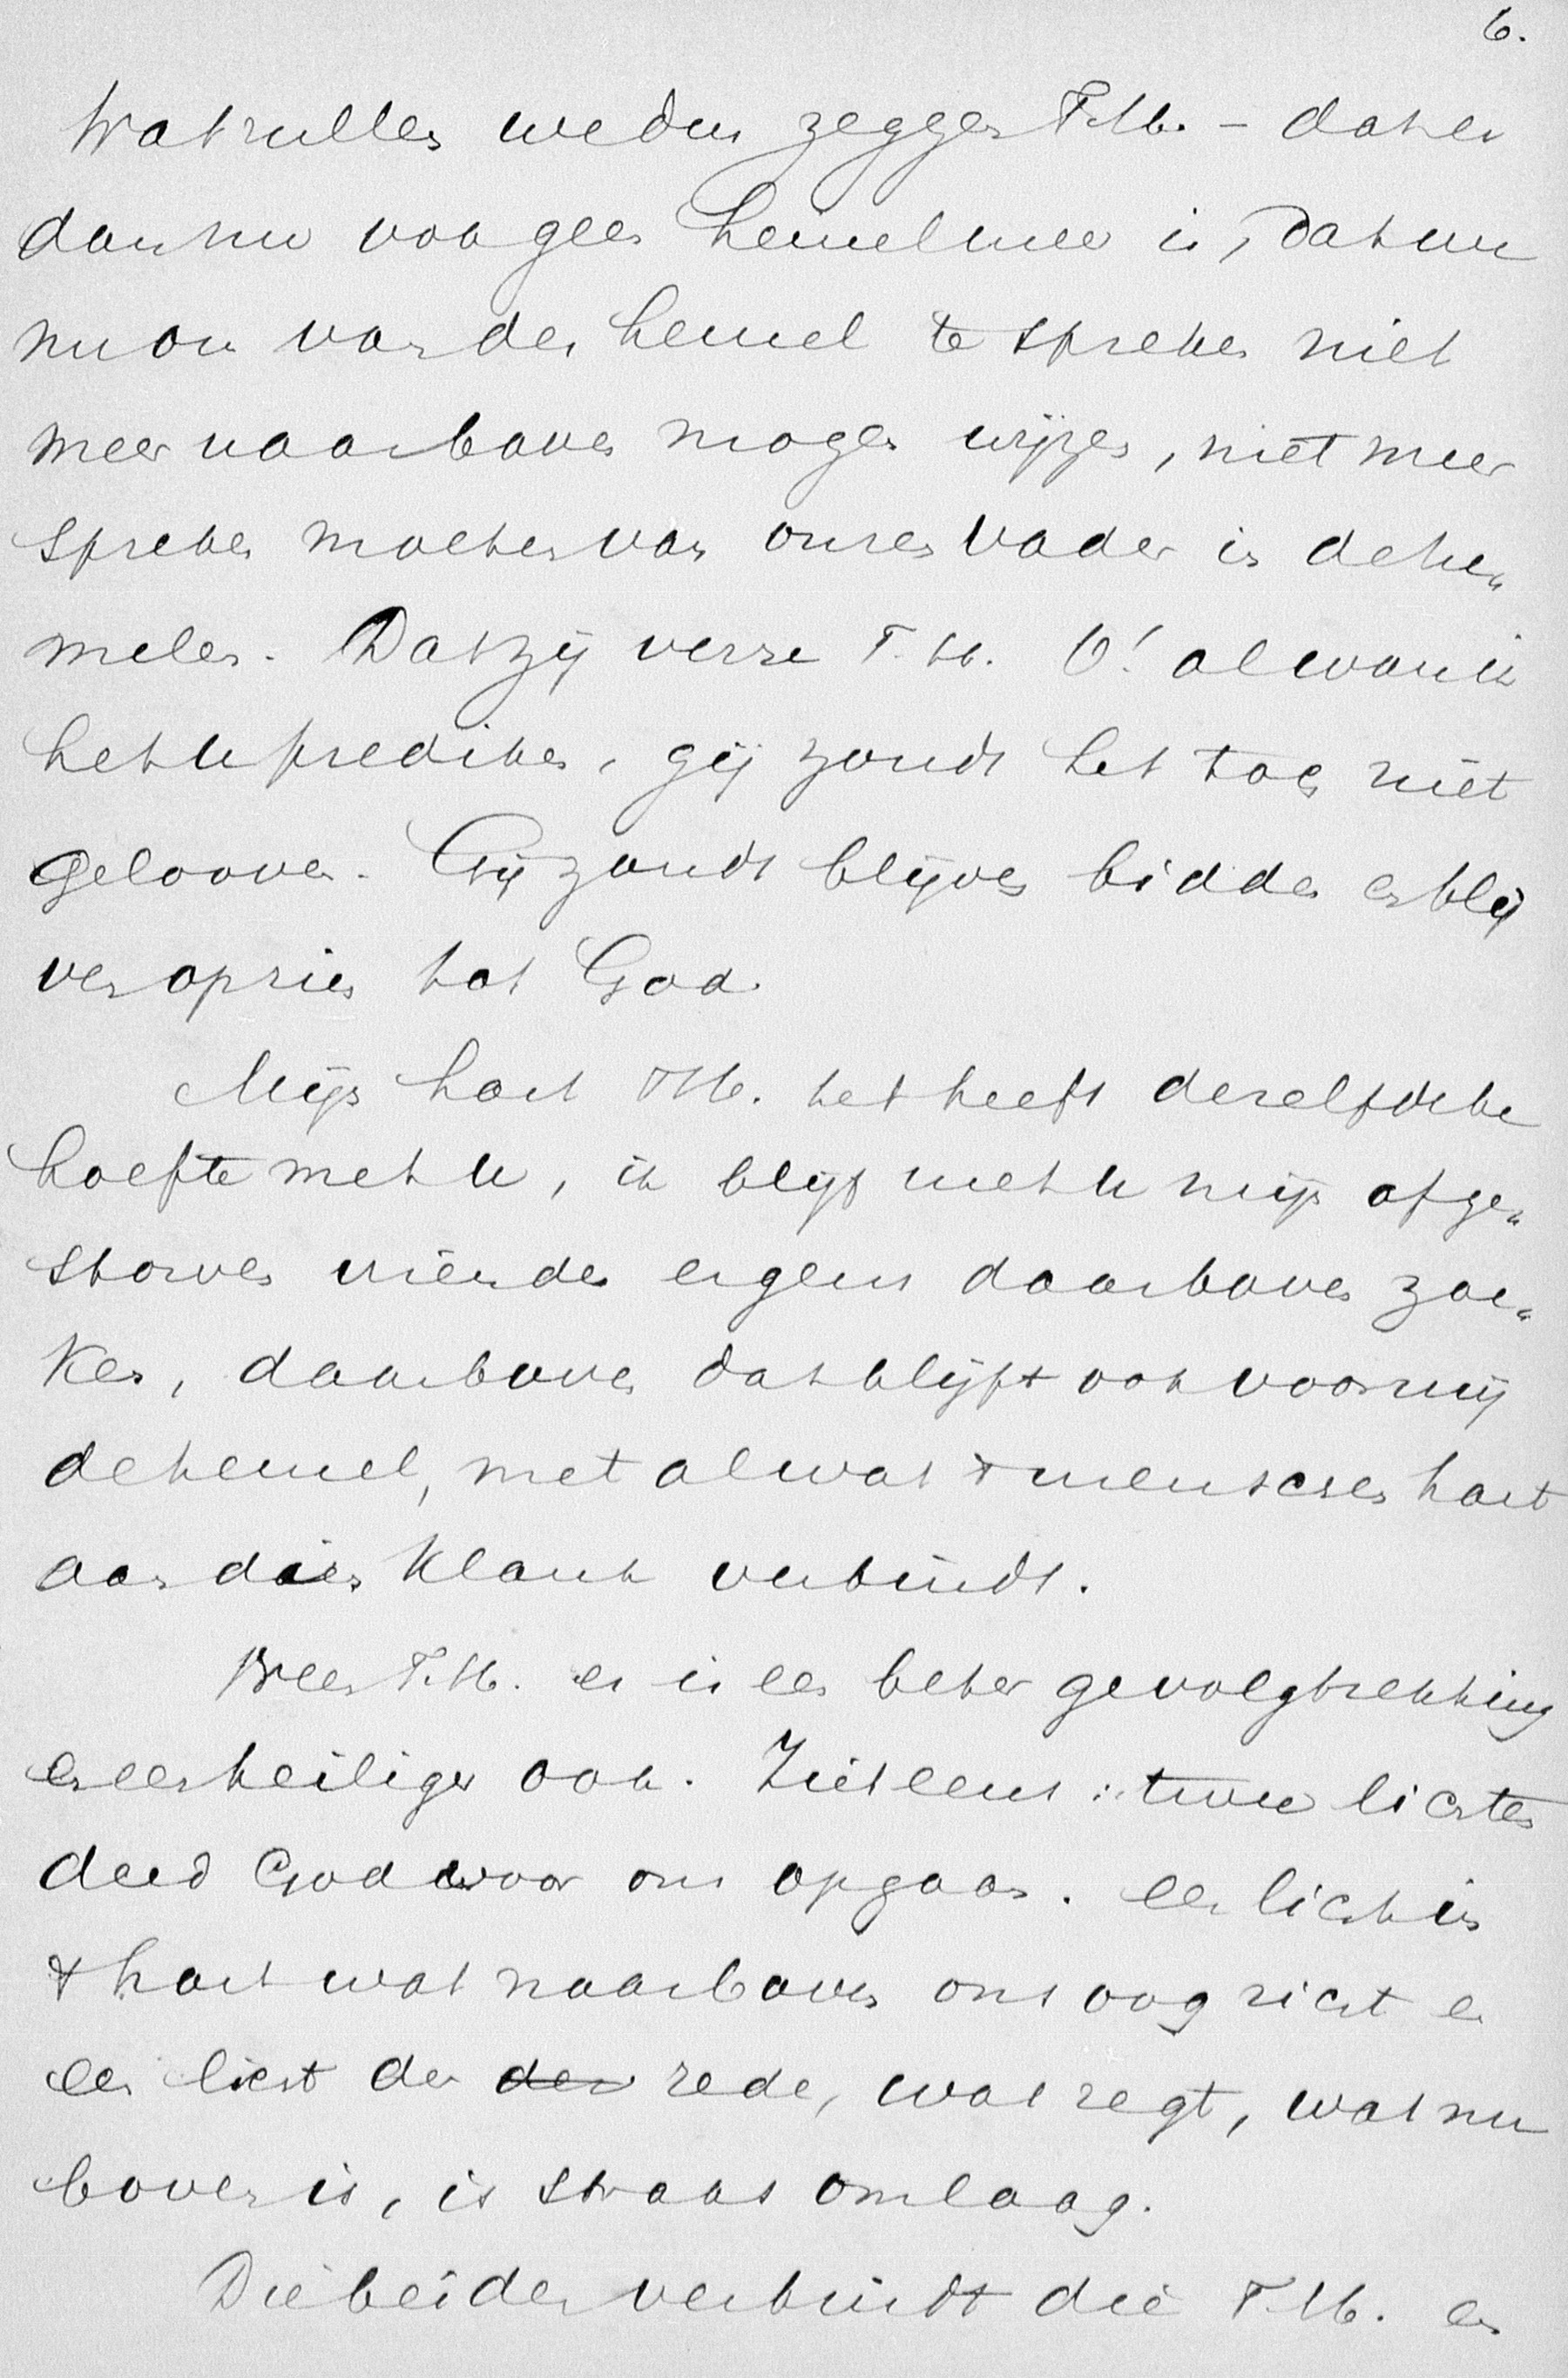 6.
Wat zullen we dus zeggen T.H. – dat er
dan nu ook geen hemel meer is, dat we
nu ons van den hemel te spreken niet
meer naar boven mogen wijzen, niet meer
spreken moeten van onzen Vader in de he„
melen. Dat zij verre T.H. O! al wou ik
het U prediken, gij zoudt het toch niet
gelooven. Gij zoudt blijven bidden en blij
ven opzien tot God.
Mijn hart T.H. het heeft dezelfde be
hoefte met U, ik blijf met U mijn afge„
storven vrienden ergens daarboven zoe„
ken, daarboven dat blijft ook voor mij
de hemel, met al wat 't menschen hart
aan dien klank verbindt.
Neen T.H. er is een beter gevolgtrekking
en een heiliger ook. Ziet eens: twee lichten
deed God voor ons opgaan. Een licht in
't hart wat naar boven ons oog richt en
een licht der der rede, wat zegt, wat nu
boven is, is straks omlaag.
Die beiden verbindt die T.H. en